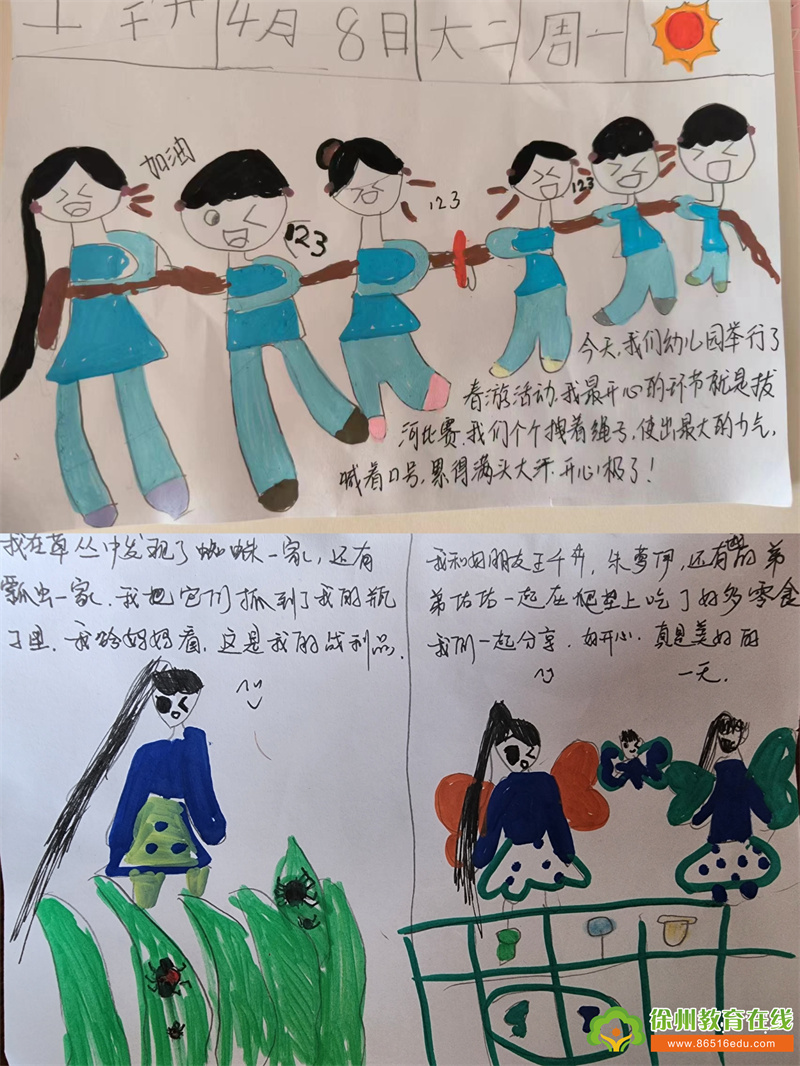 王 千卉 4月 8日 大二 周一
加油
123
123
123
今天,我们幼儿园举行了
春游活动.我最开心的环节就是拔
河比赛.我们个个拽着绳子,使出最大的力气,
喊着口号,累得满头大汗.开心极了!
我在草丛中发现了蜘蛛一家,还有
瓢虫一家.我把它们抓到了我的瓶
子里.我给妈妈看.这是我的战利品.
我和好朋友王千卉,朱梦伊,还有 的弟
弟 一起在 垫上吃了好多零食
我们一起分享.好开心.真是美好的
一天.
徐州教育在线
www.86516edu.com